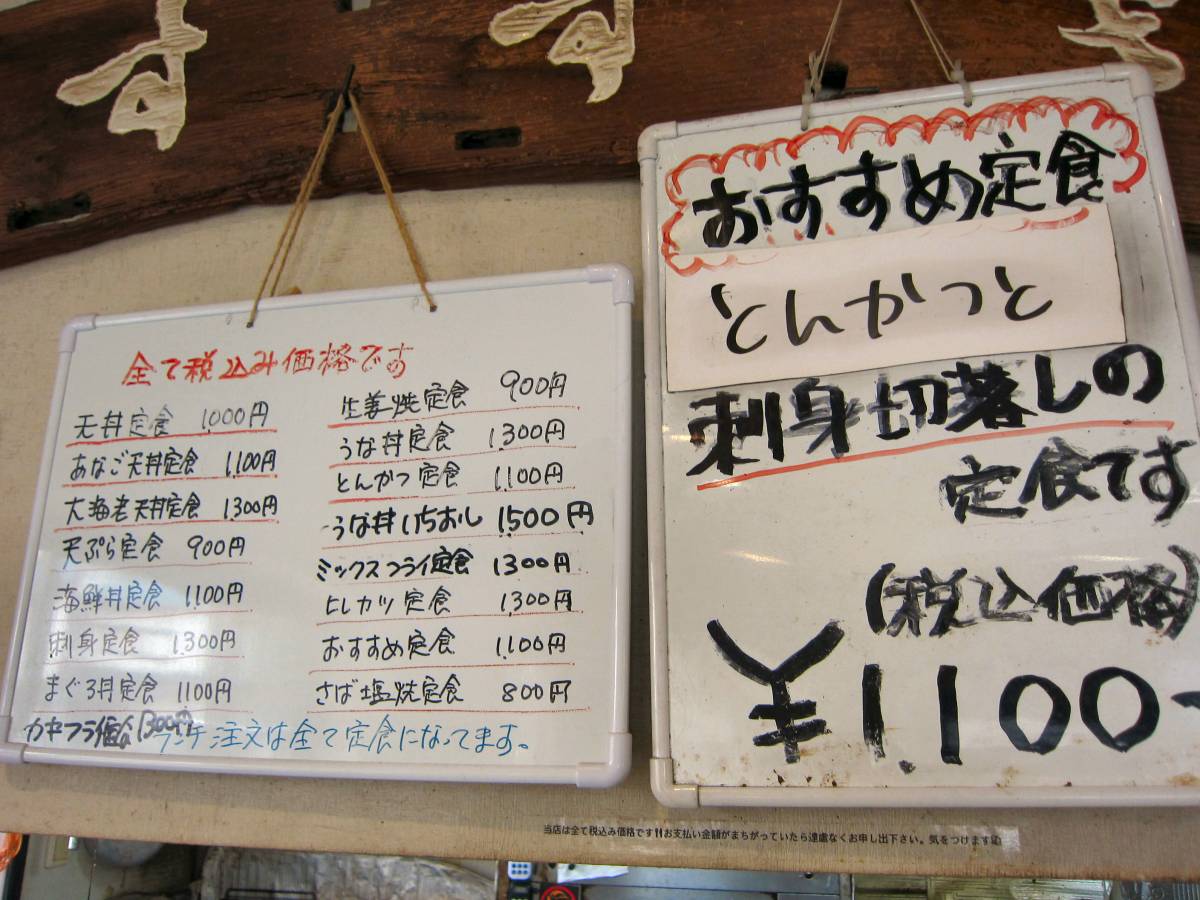 す す き
全て税込み価格です
天丼定食 1,000円
あなご天丼定食 1,100円
大海老天丼定食 1,300円
天ぷら定食 900円
海鮮丼定食 1,100円
刺身定食 1,300円
まぐろ丼定食 1100円
カキフライ定食 1300円
生姜焼定食 900円
うな丼定食 1,300円
とんかつ定食 1,100円
うな丼いちおし 1,500円
ミックスフライ定食 1300円
ヒレカツ定食 1,300円
おすすめ定食 1,100円
さば塩焼定食 800円
ランチ注文は全て定食になってます。
おすすめ定食
とんかつと
刺身切落しの
定食です
(税込価格)
¥1,100-
当店は全て税込み価格です!!お支払い金額がまちがっていたら遠慮なくお申し出下さい。気をつけます